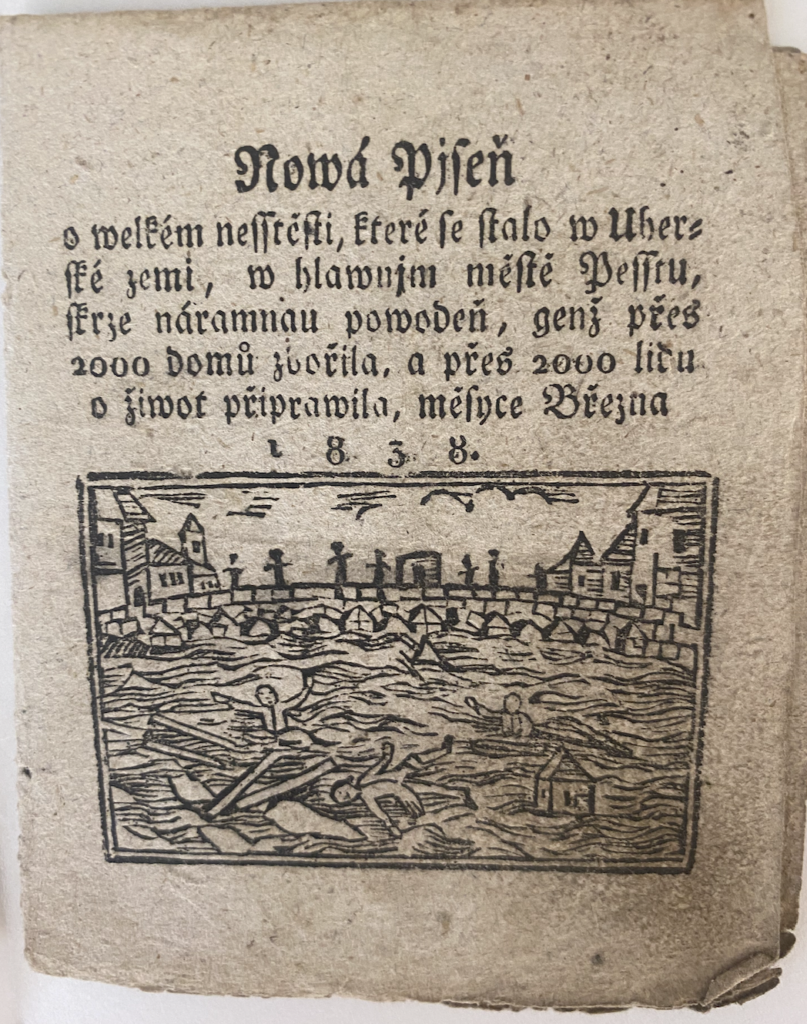 Nowá Pjseň
o welkém nesstěsti, které se stalo w Uher-
ské zemi, w hlawnjm městě Pesstu,
skrze náramnau powodeň, genž přes
2000 domů zbořila, a přes 2000 lidu
o žiwot připrawila, měsyce Března
1838.